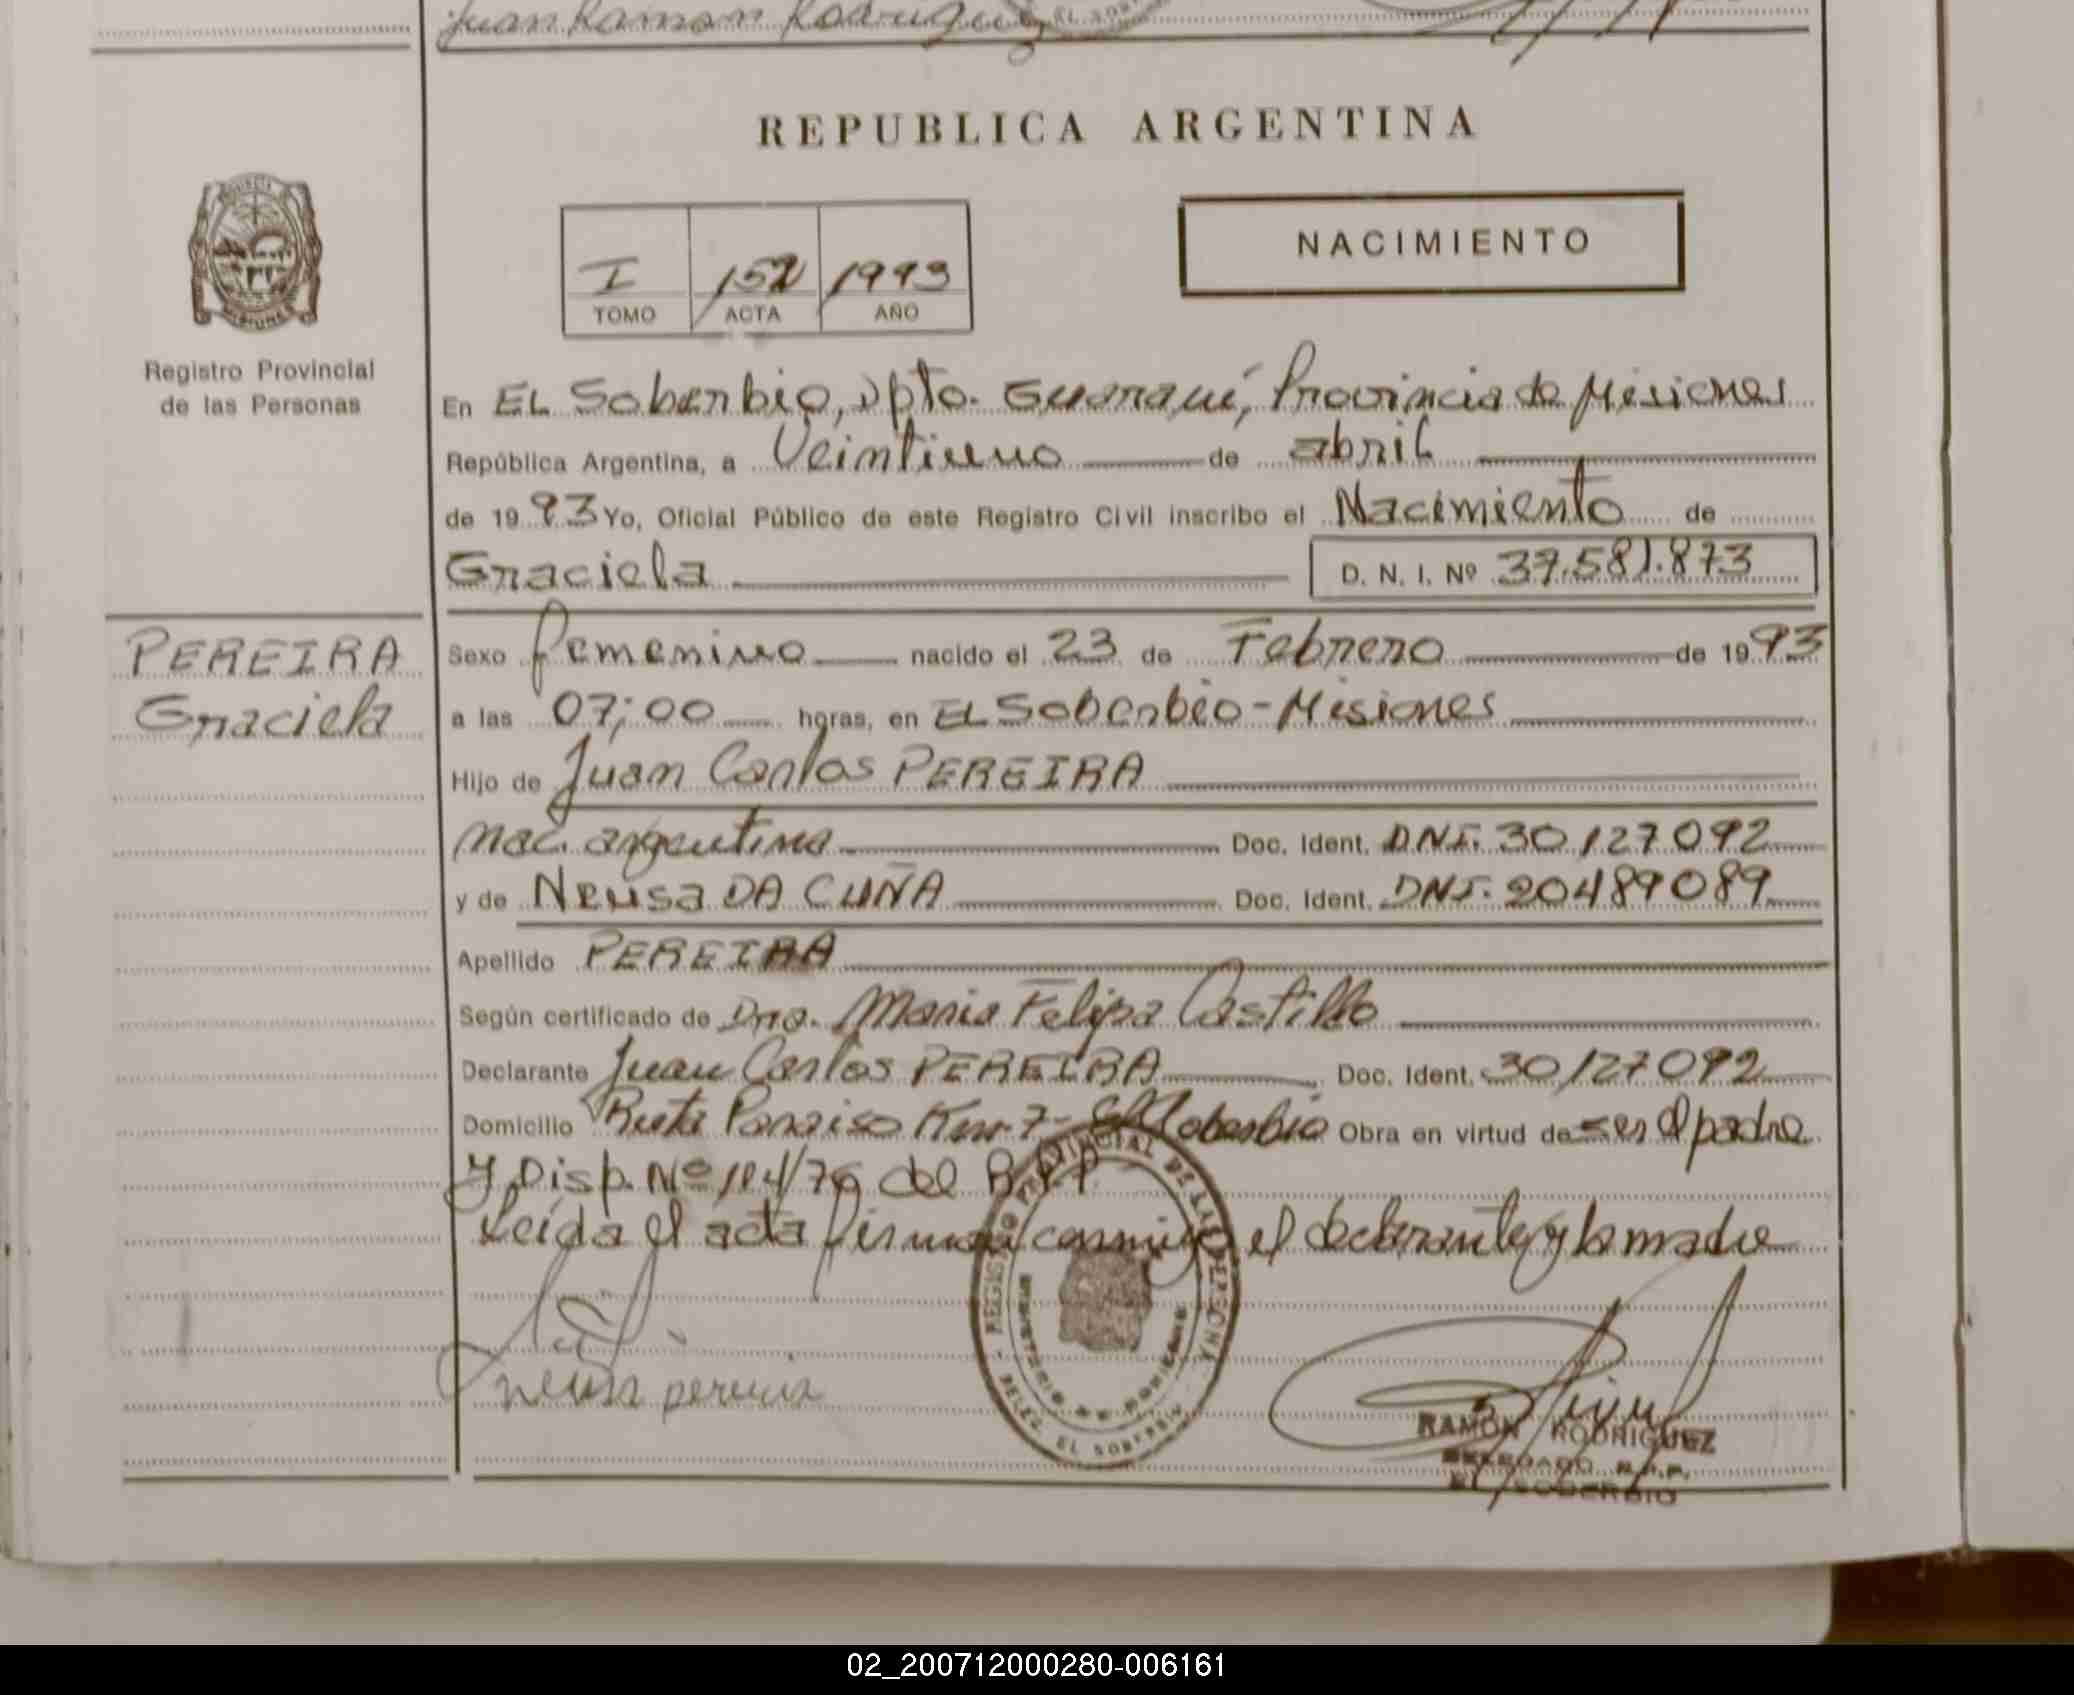 Juan Ramon Rodriguez
REPUBLICA ARGENTINA
NACIMIENTO
I 152 1993
TOMO ACTA AÑO
Registro Provincial
de las Personas
En EL Soberbio, Dpto. Guaraní, Provincia de Misiones
República Argentina, a Veintiuno de abril
de 1993 Yo, Oficial Público de este Registro Civil inscribo el Nacimiento de
Graciela D. N. I. Nº 37.581.873
PEREIRA
Graciela
Sexo femenino nacido el 23 de Febrero de 1993
a las 07;00 horas, en EL Soberbio - Misiones
Hijo de Juan Carlos PEREIRA
nac. argentina Doc. Ident. DNI. 30127092
y de Neusa DA CUÑA Doc. Ident. DNI. 20489089
Apellido PEREIRA
Según certificado de Dra. Maria Felipa Castillo
Declarante Juan Carlos PEREIRA Doc. Ident. 30127092
Domicilio Ruta Paraiso Km. 7 - El Soberbio Obra en virtud de ser el padre
y Disp. Nº 114/76 del R.P.P.
Leída el acta firman conmigo el declarante y la madre
REGISTRO PROVINCIAL DE LAS PERSONAS
DELEG. EL SOBERBIO
neusa pereira
RAMON RODRIGUEZ
DELEGADO R.P.P.
EL SOBERBIO
02_200712000280-006161